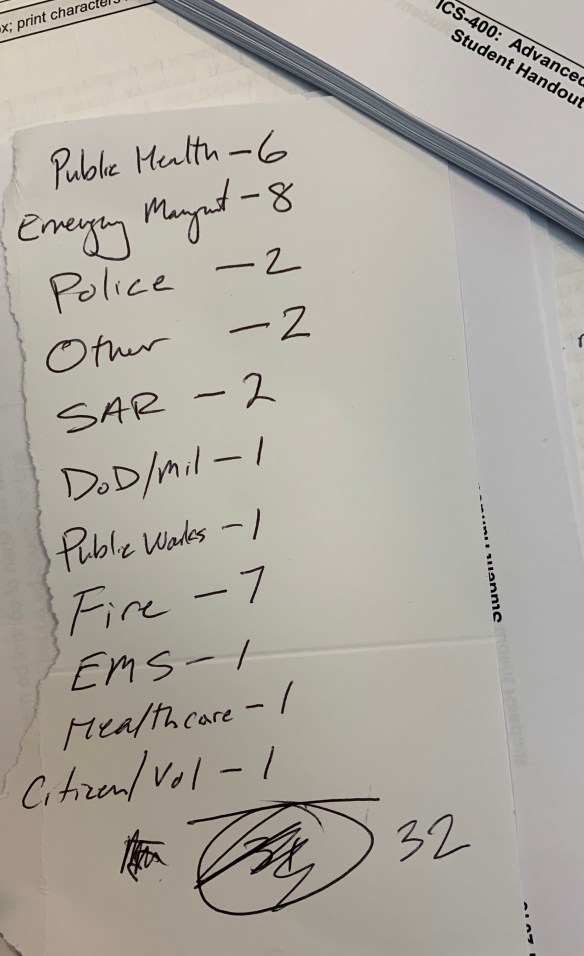 x; print characters
ICS-400: Advanced
Student Handout
Public Health - 6
Emergency Mangmt - 8
Police - 2
Other - 2
SAR - 2
DoD/Mil - 1
Public Works - 1
Fire - 7
EMS - 1
Healthcare - 1
Citizen/Vol - 1
32